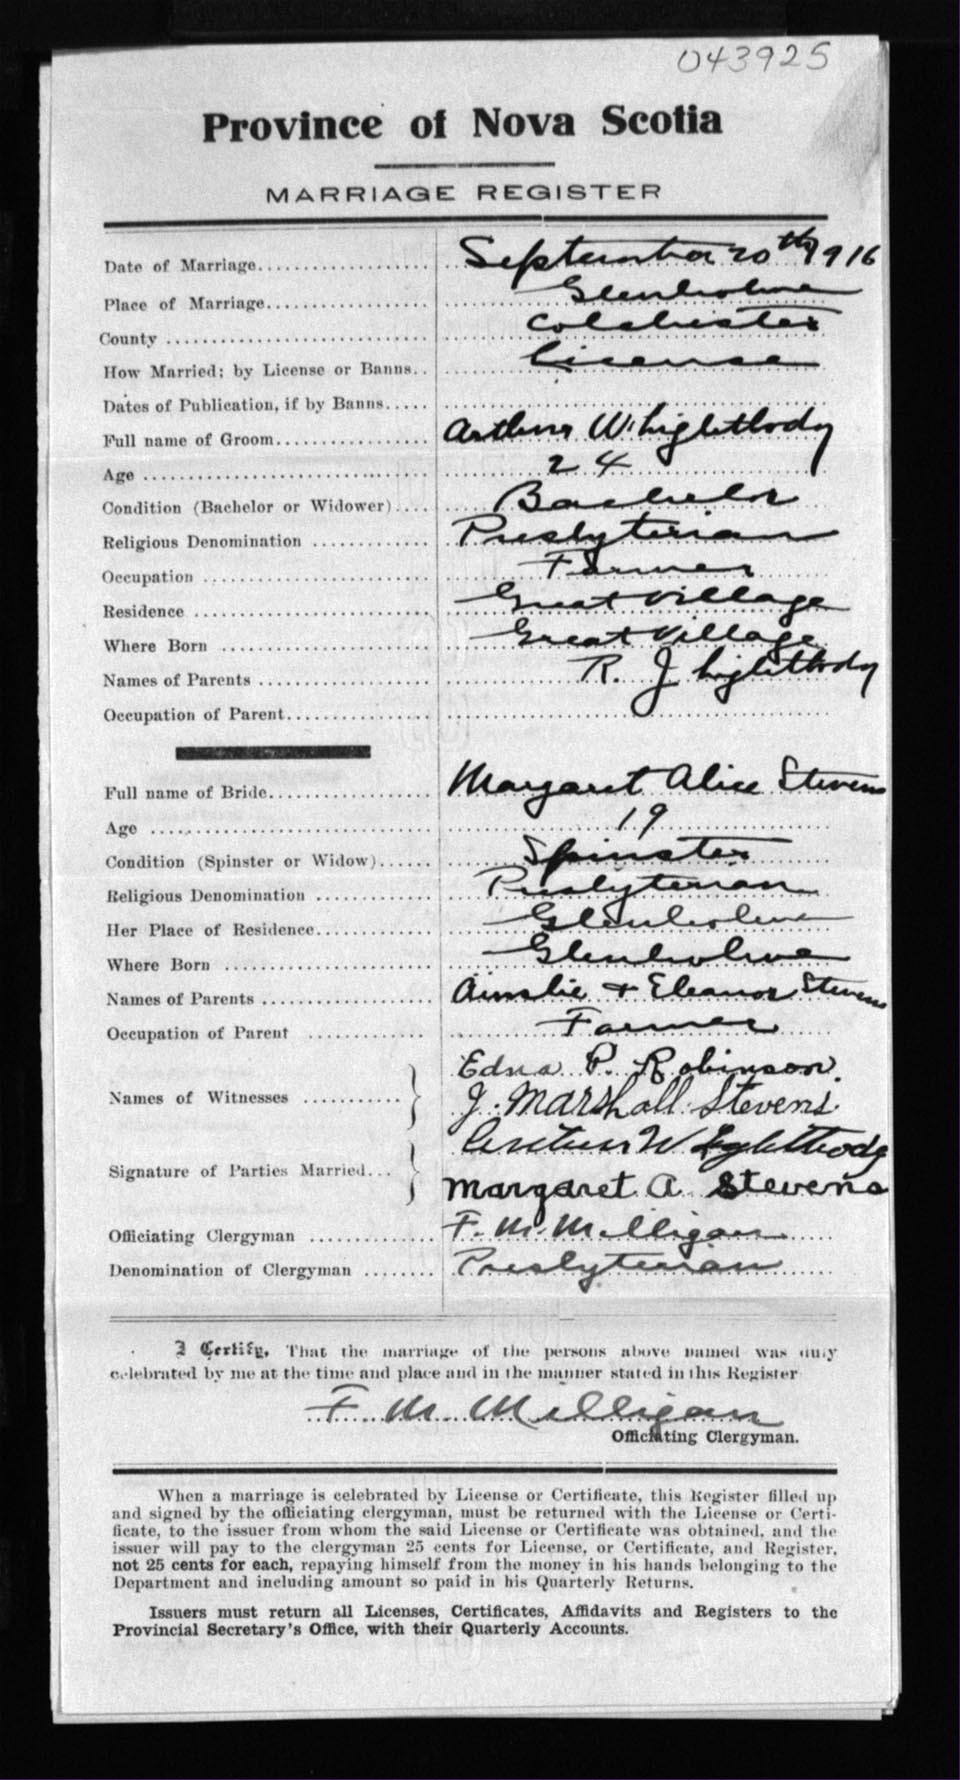 043925
Province of Nova Scotia
MARRIAGE REGISTER
Date of Marriage.................... September 20th 1916
Place of Marriage................... Glenholme
County ............................ Colchester
How Married; by License or Banns.. License
Dates of Publication, if by Banns.....
Full name of Groom.................. Arthur W. Lightbody
Age ............................... 24
Condition (Bachelor or Widower).... Bachelor
Religious Denomination ............. Presbyterian
Occupation ......................... Farmer
Residence .......................... Great Village
Where Born ........................ Great Village
Names of Parents ................... R. J Lightbody
Occupation of Parent................
Full name of Bride................... Margaret Alice Stevens
Age ............................... 19
Condition (Spinster or Widow)...... Spinster
Religious Denomination ............. Presbyterian
Her Place of Residence.............. Glenholme
Where Born ........................ Glenholme
Names of Parents ................... Ainslie + Eleanor Stevens
Occupation of Parent .............. Farmer
Names of Witnesses ........... Edna P. Robinson.
J. Marshall Stevens.
Signature of Parties Married... Arthur W Lightbody
Margaret A. Stevens
Officiating Clergyman .............. F. M. Milligan
Denomination of Clergyman ........ Presbyterian
I Certify, That the marriage of the persons above named was duly
celebrated by me at the time and place and in the manner stated in this Register
F. M. Milligan
Officiating Clergyman.
When a marriage is celebrated by License or Certificate, this Register filled up
and signed by the officiating clergyman, must be returned with the License or Certi-
ficate, to the issuer from whom the said License or Certificate was obtained, and the
issuer will pay to the clergyman 25 cents for License, or Certificate, and Register,
not 25 cents for each, repaying himself from the money in his hands belonging to the
Department and including amount so paid in his Quarterly Returns.
Issuers must return all Licenses, Certificates, Affidavits and Registers to the
Provincial Secretary's Office, with their Quarterly Accounts.